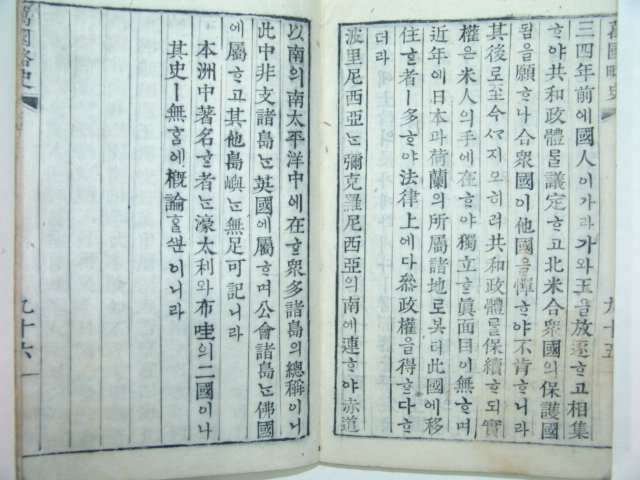 萬國略史
三四年前에國人이가라가와王을放逐ᄒᆞ고相集
ᄒᆞ야共和政體ᄅᆞᆯ議定ᄒᆞ고北米合衆國의保護國
됨을願ᄒᆞ나合衆國이他國을憚ᄒᆞ야不肯ᄒᆞ니라
其後로至今ᄭᆞ지오히려共和政體ᄅᆞᆯ保續ᄒᆞ되實
權은米人의手에在ᄒᆞ야獨立ᄒᆞᄂᆞᆫ眞面目이無ᄒᆞ며
近年에日本과荷蘭의所屬諸地로붓터此國에移
住ᄒᆞᄂᆞᆫ者ㅣ多ᄒᆞ야法律上에다參政權을得ᄒᆞ다ᄒᆞ
더라
波里尼西亞ᄂᆞᆫ彌克羅尼西亞의南에連ᄒᆞ야赤道
九十五
以南의南太平洋中에在ᄒᆞᆫ衆多諸島의總稱이니
此中非支諸島ᄂᆞᆫ英國에屬ᄒᆞ며公會諸島ᄂᆞᆫ佛國
에屬ᄒᆞ고其他島嶼ᄂᆞᆫ無足可記니라
本洲中著名ᄒᆞᆫ者ᄂᆞᆫ濠太利와布哇의二國이나
其史ㅣ無홈에槪論ᄒᆞᆯᄲᅮᆫ이니라
萬國略史
九十六